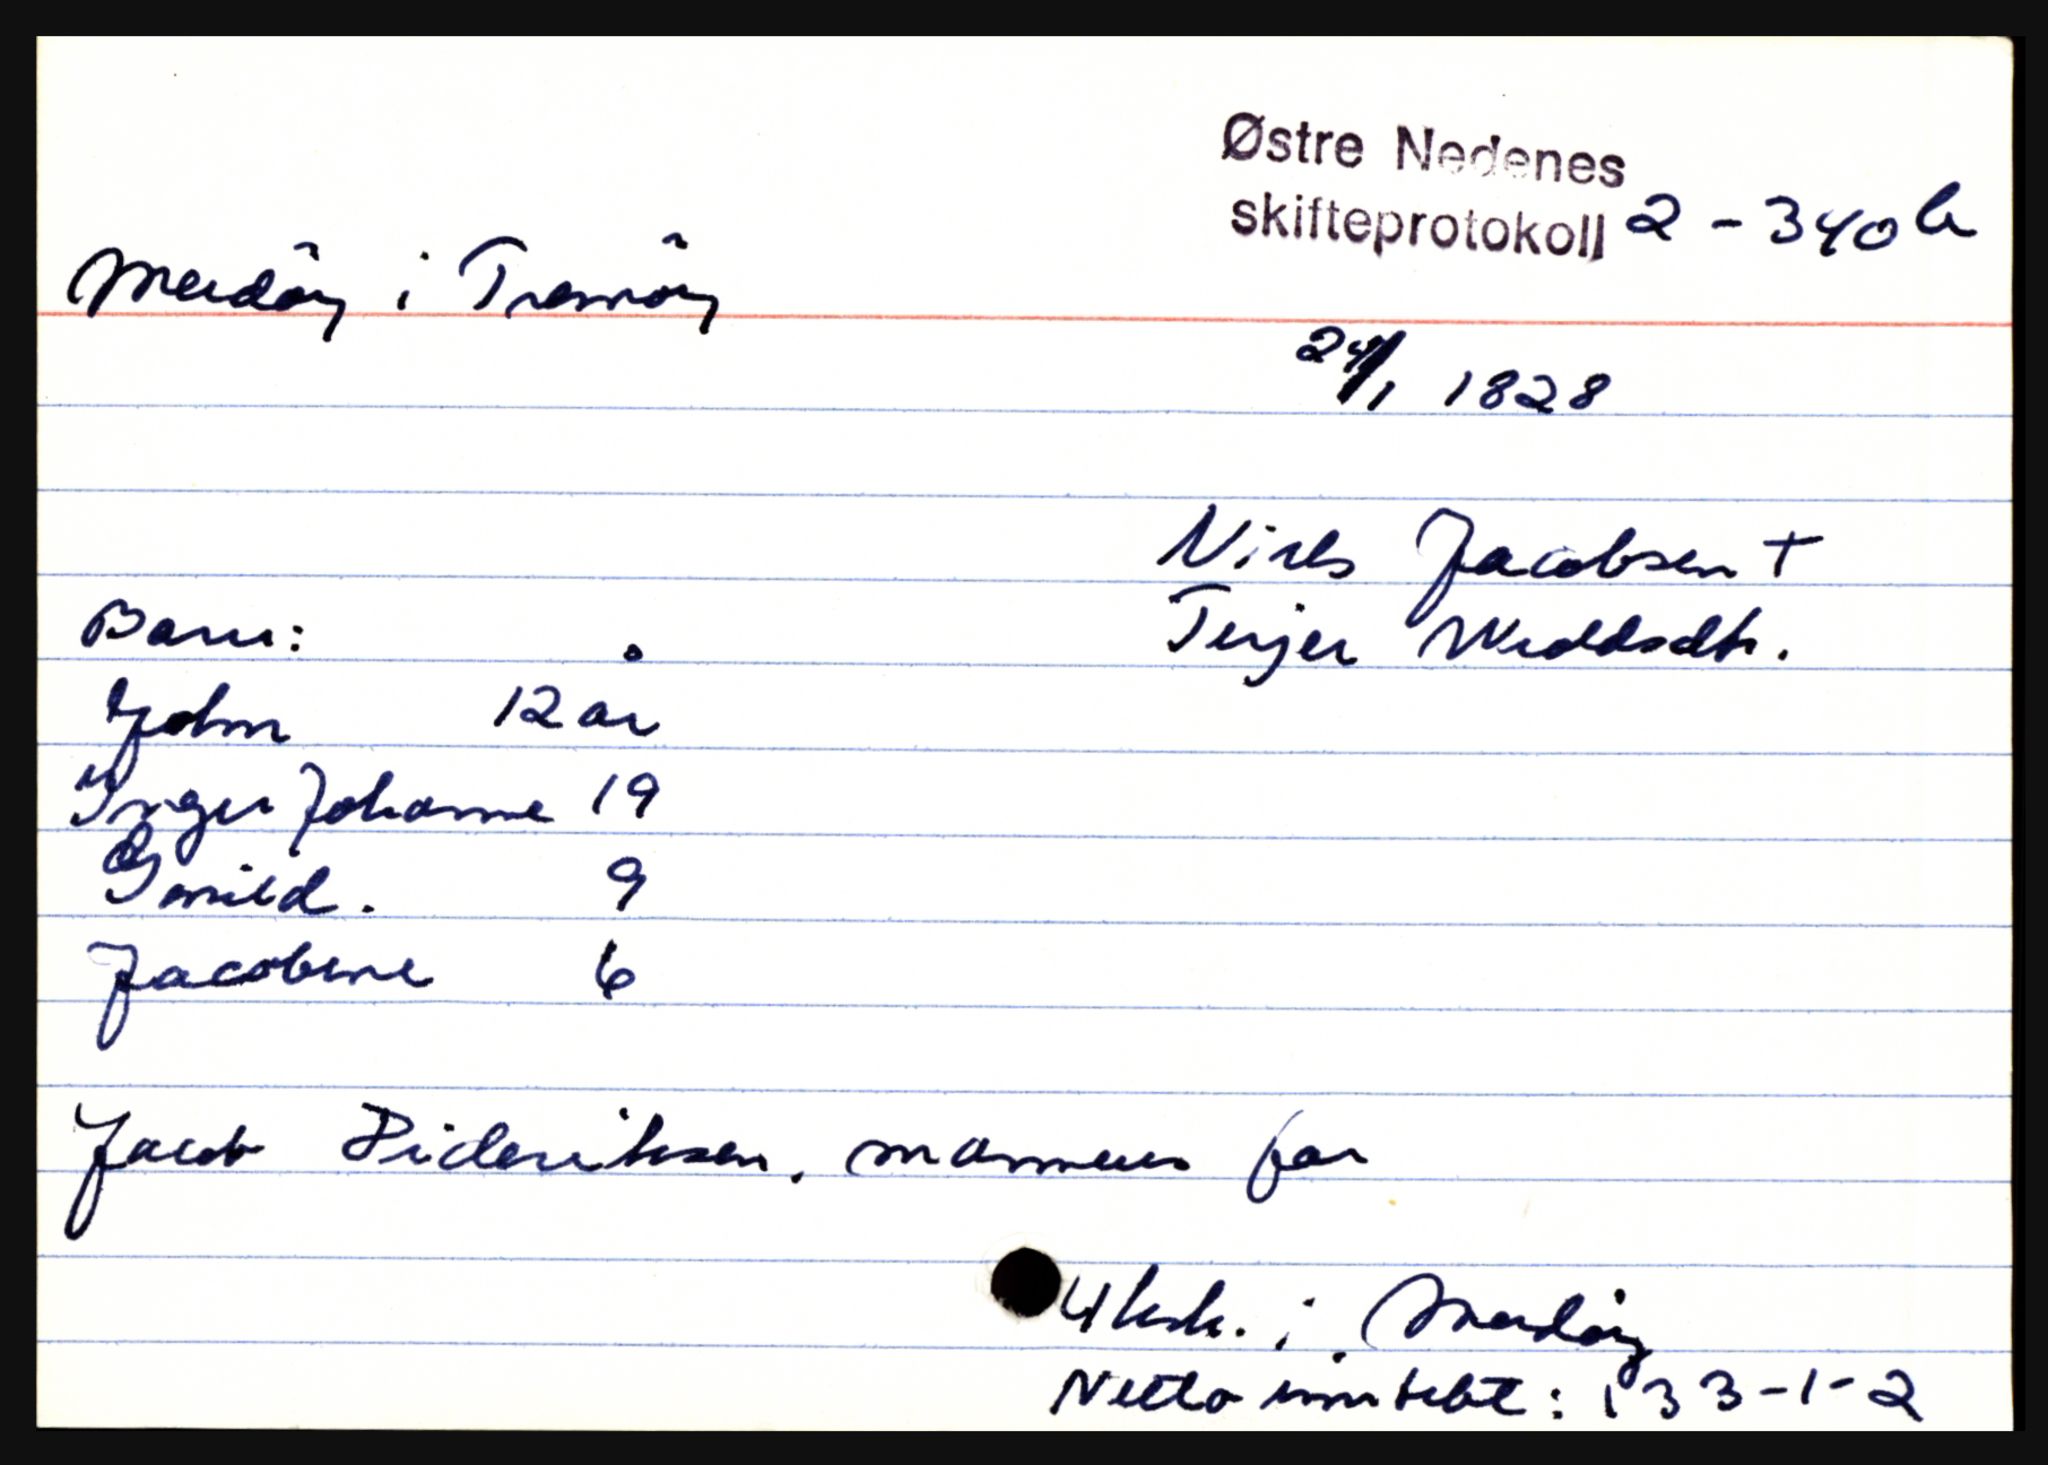 Østre Nedenes
skifteprotokoll 2 - 340 b
Merdöy i Tromöy
24/1 1828
Niels Jacobsen +
Terjer
Barn:
John 12 år
Inger Johanne 19
Gunild. 9
Jacobine 6
Jacob Dideriksen, mannens far
4 hsh. i Merdöy
Netto inntekt: 133-1-2